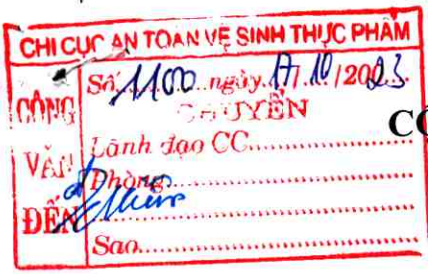 CHI CỤC AN TOÀN VỆ SINH THỰC PHẨM
CÔNG VĂN ĐẾN
Số 1100 ngày 17/10/2023
CHUYỂN
Lãnh đạo CC
Phòng
Sao
CÔ